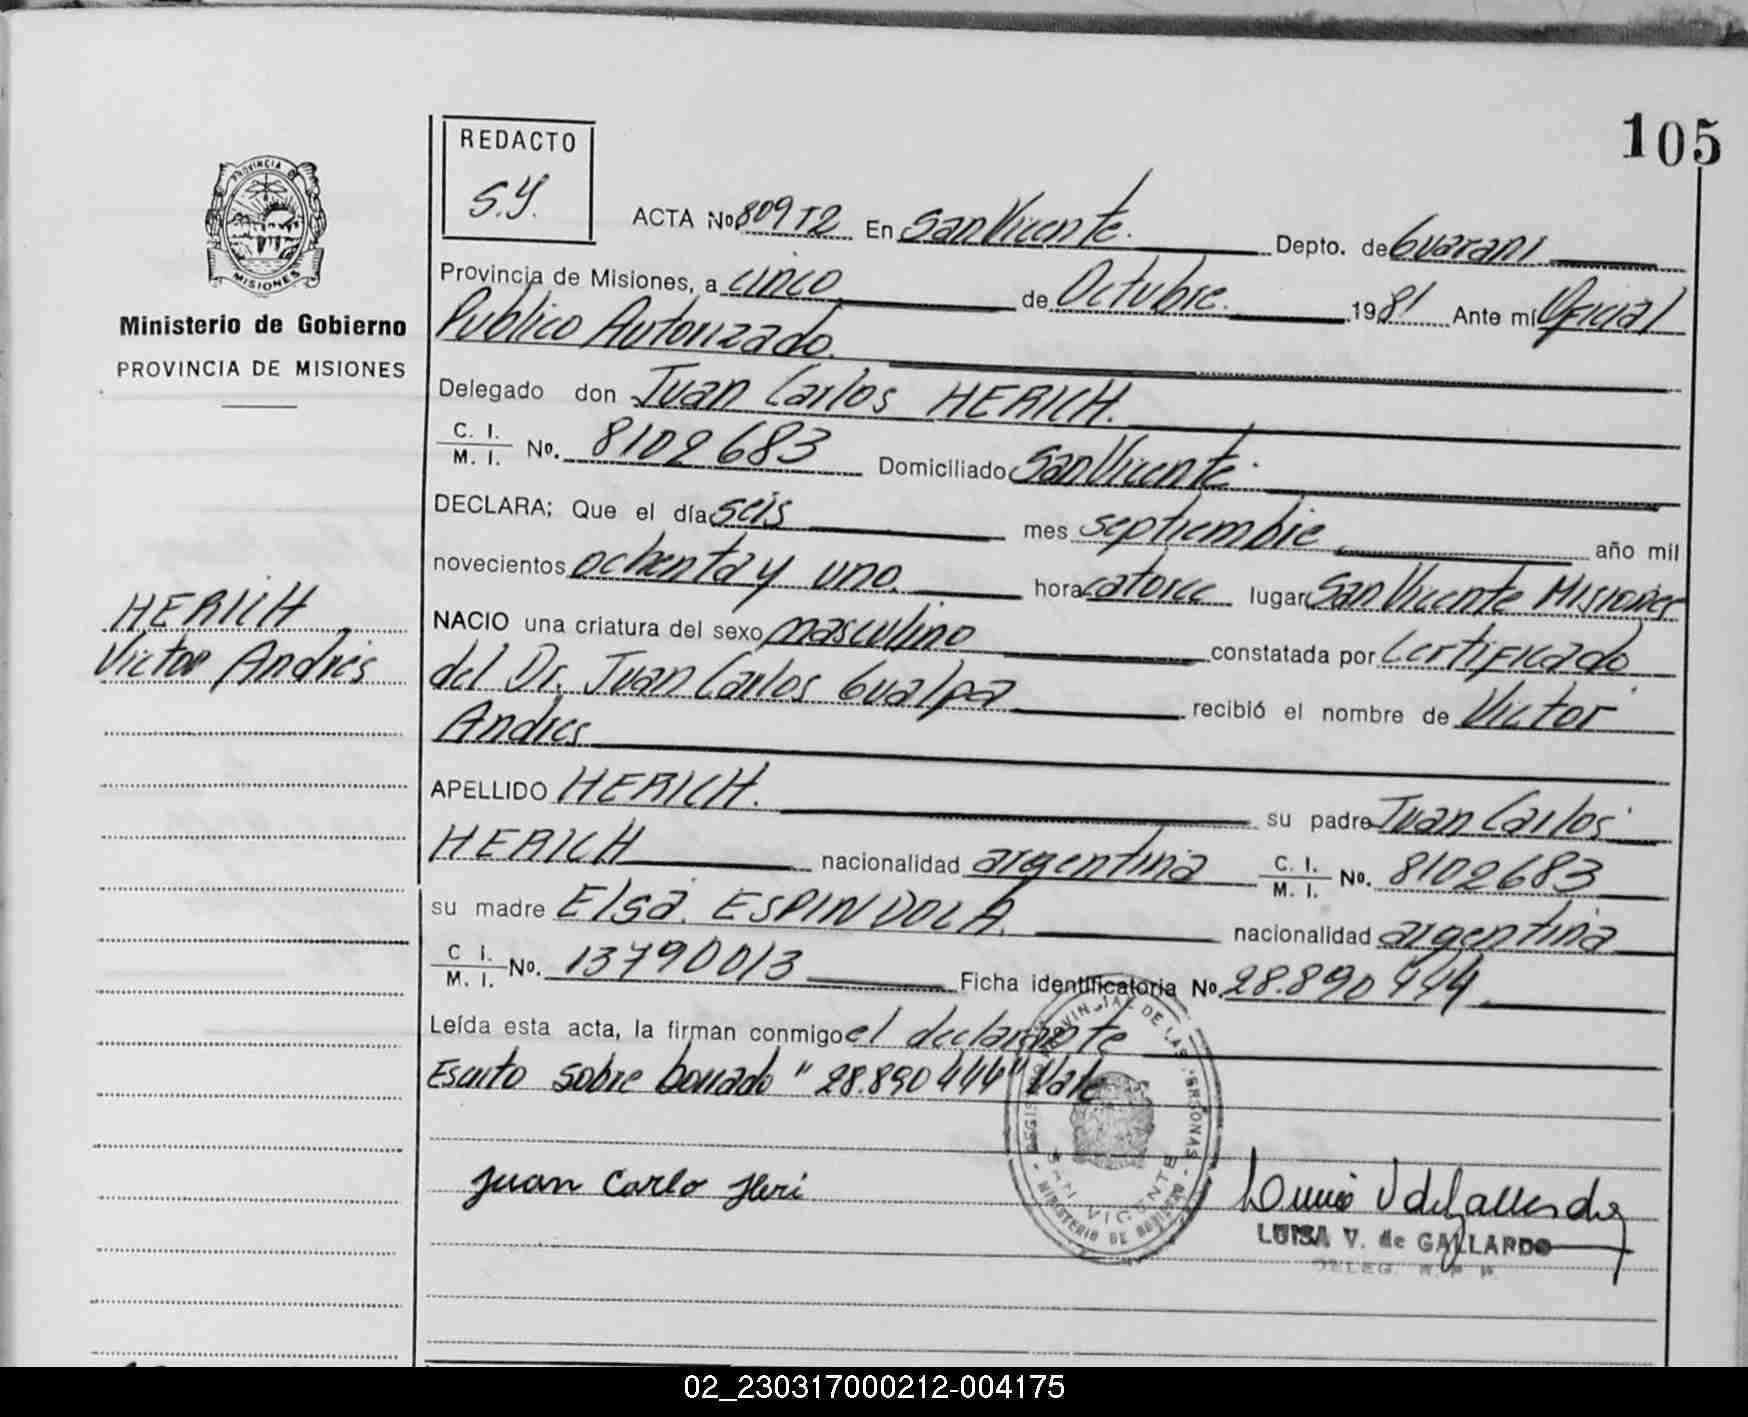 105
REDACTO
S.Y.
PROVINCIA DE
MISIONES
Ministerio de Gobierno
PROVINCIA DE MISIONES
ACTA Nº 809 T2 En San Vicente. Depto. de Guarani
Provincia de Misiones, a cinco de Octubre. 1981 Ante mí Oficial
Publico Autorizado.
Delegado don Juan Carlos HERICH.
C. I.
M. I. Nº. 8102683 Domiciliado San Vicente.
DECLARA; Que el día seis mes septiembre año mil
novecientos ochenta y uno. hora catorce lugar San Vicente Misiones
HERICH
Victor Andres
NACIO una criatura del sexo masculino constatada por Certificado
del Dr. Juan Carlos Gualpa recibió el nombre de Victor
Andres
APELLIDO HERICH. su padre Juan Carlos
HERICH nacionalidad argentina C. I.
M. I. Nº. 8102683
su madre Elsa. ESPINDOLA. nacionalidad argentina
C I.
M. I. Nº. 13790013 Ficha identificatoria Nº. 28.890 444
Leída esta acta, la firman conmigo el declarante
Escrito sobre borrado "28.890 444" Vale
PROVINCIAL DE LAS PERSONAS
SAN VICENTE
MINISTERIO DE GOBIERNO
Juan Carlo Heri
LUISA V. de GALLARDO
DELEG. R. P. P.
02_230317000212-004175